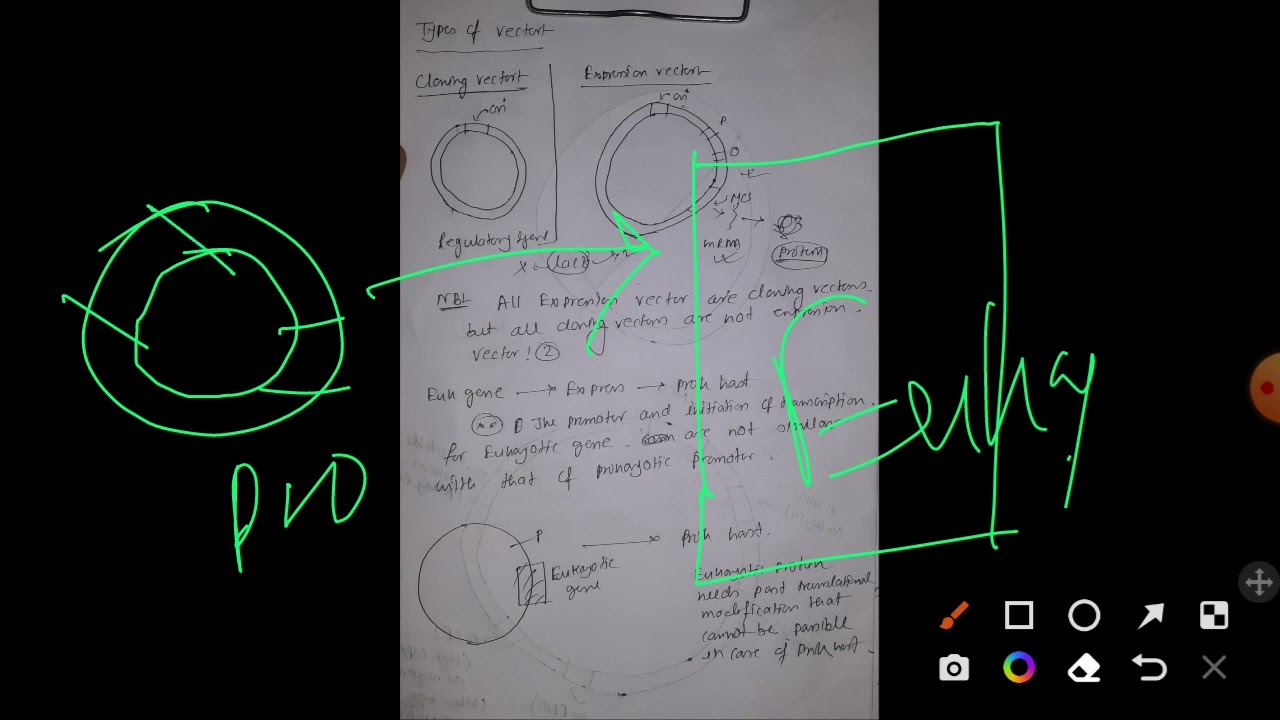 Types of vectors
Cloning vectors
Expression vectors
ori
ori
P
O
MCS
mRNA
Protein
Regulatory gene
X lacI
NB!- All Expression vector are cloning vectors.
but all cloning vectors are not expression.
vector! 2
Euk gene → Express → Prok host
** ① The promotor and initiation of transcription.
for Eukaryotic gene. are not similar
with that of prokaryotic promotor.
P
Eukayotic
gene
Prok host.
Eukaryotic protein
needs post translational
modification that
cannot be possible
in case of Prok host.
pro